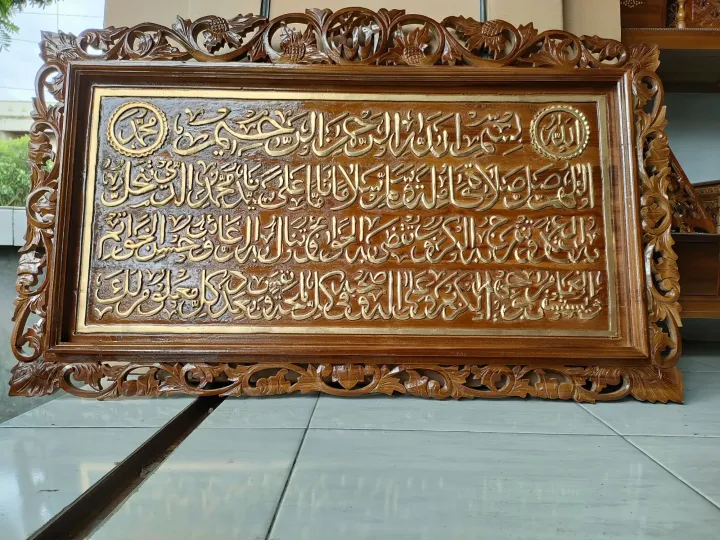 الله بسم الله الرحمن الرحيم محمد
اللهم صل صلاة كاملة وسلم سلاما تاما على سيدنا محمد الذي تنحل
به العقد وتنفرج به الكرب وتقضى به الحوائج وتنال به الرغائب وحسن الخواتم
ويستسقى الغمام بوجهه الكريم وعلى اله وصحبه في كل لمحة ونفس بعدد كل معلوم لك